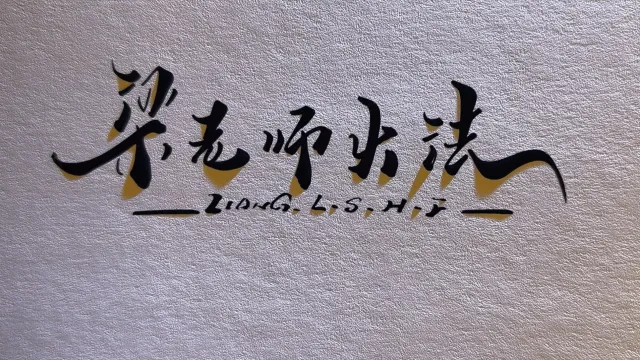 梁老师火法
LIANG.L.S.H.F